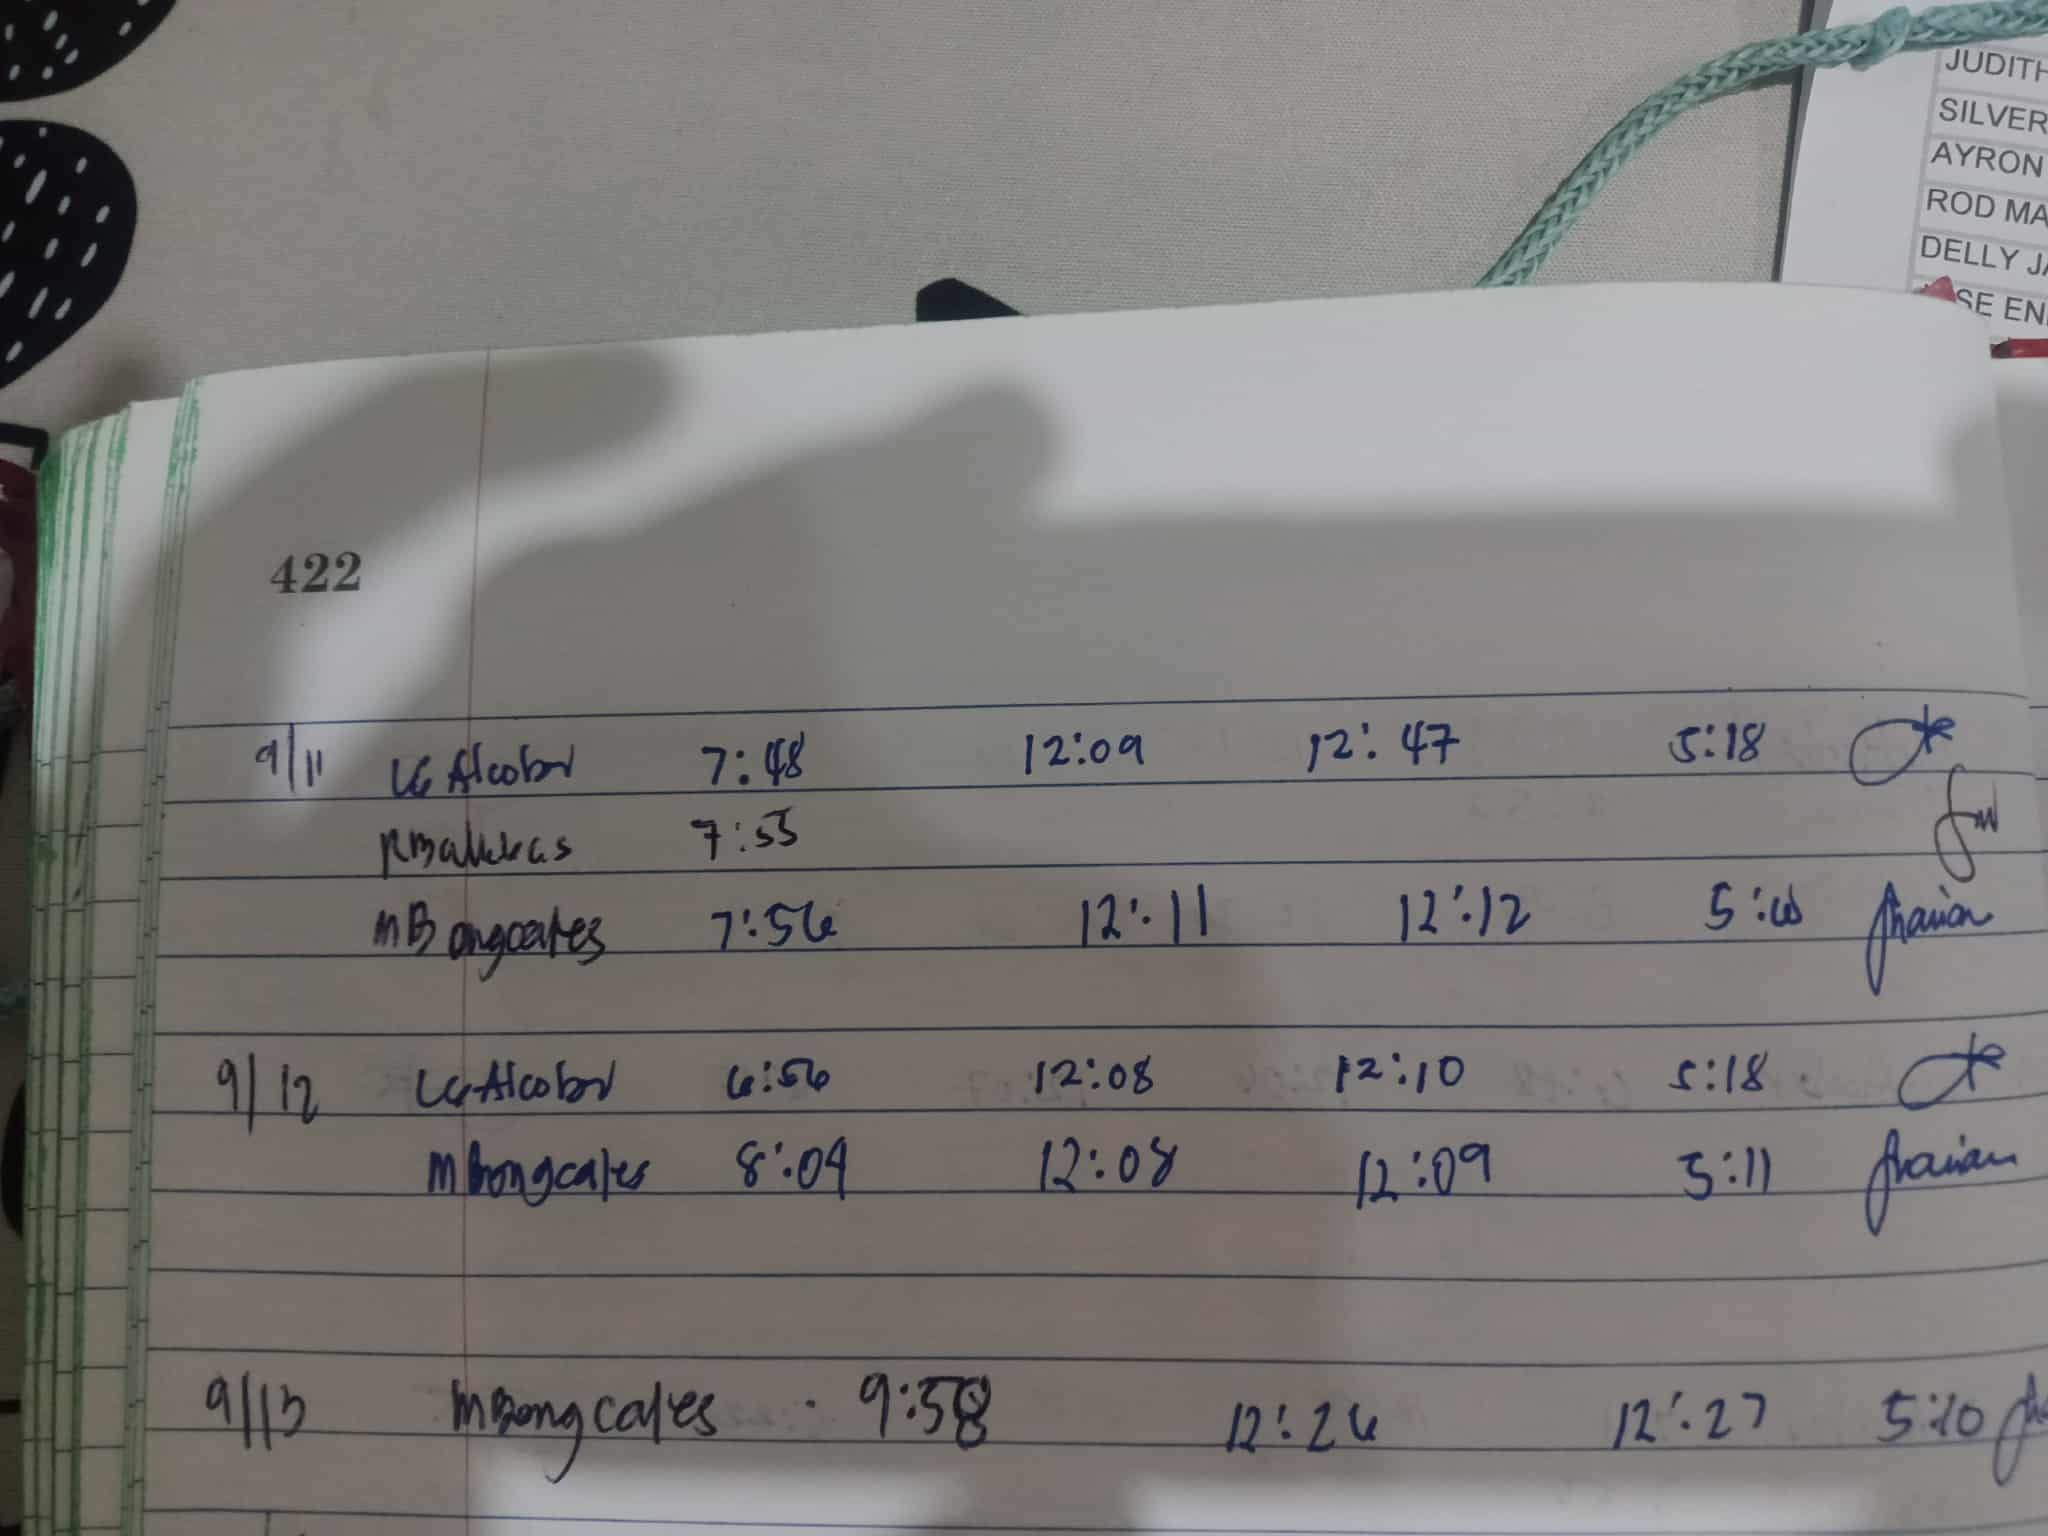 JUDITH
SILVER
AYRON
ROD MA
DELLY JA
SE EN
422
9/11 LG Alcober 7:48 12:09 12:47 5:18
7:55
MBongcales 7:56 12:11 12:12
9/12 LG Alcober 6:56 12:08 12:10 5:18
MBongcales 8:09 12:08 12:09 5:11
9/13 MBongcales 9:58 12:26 12:27 5:10